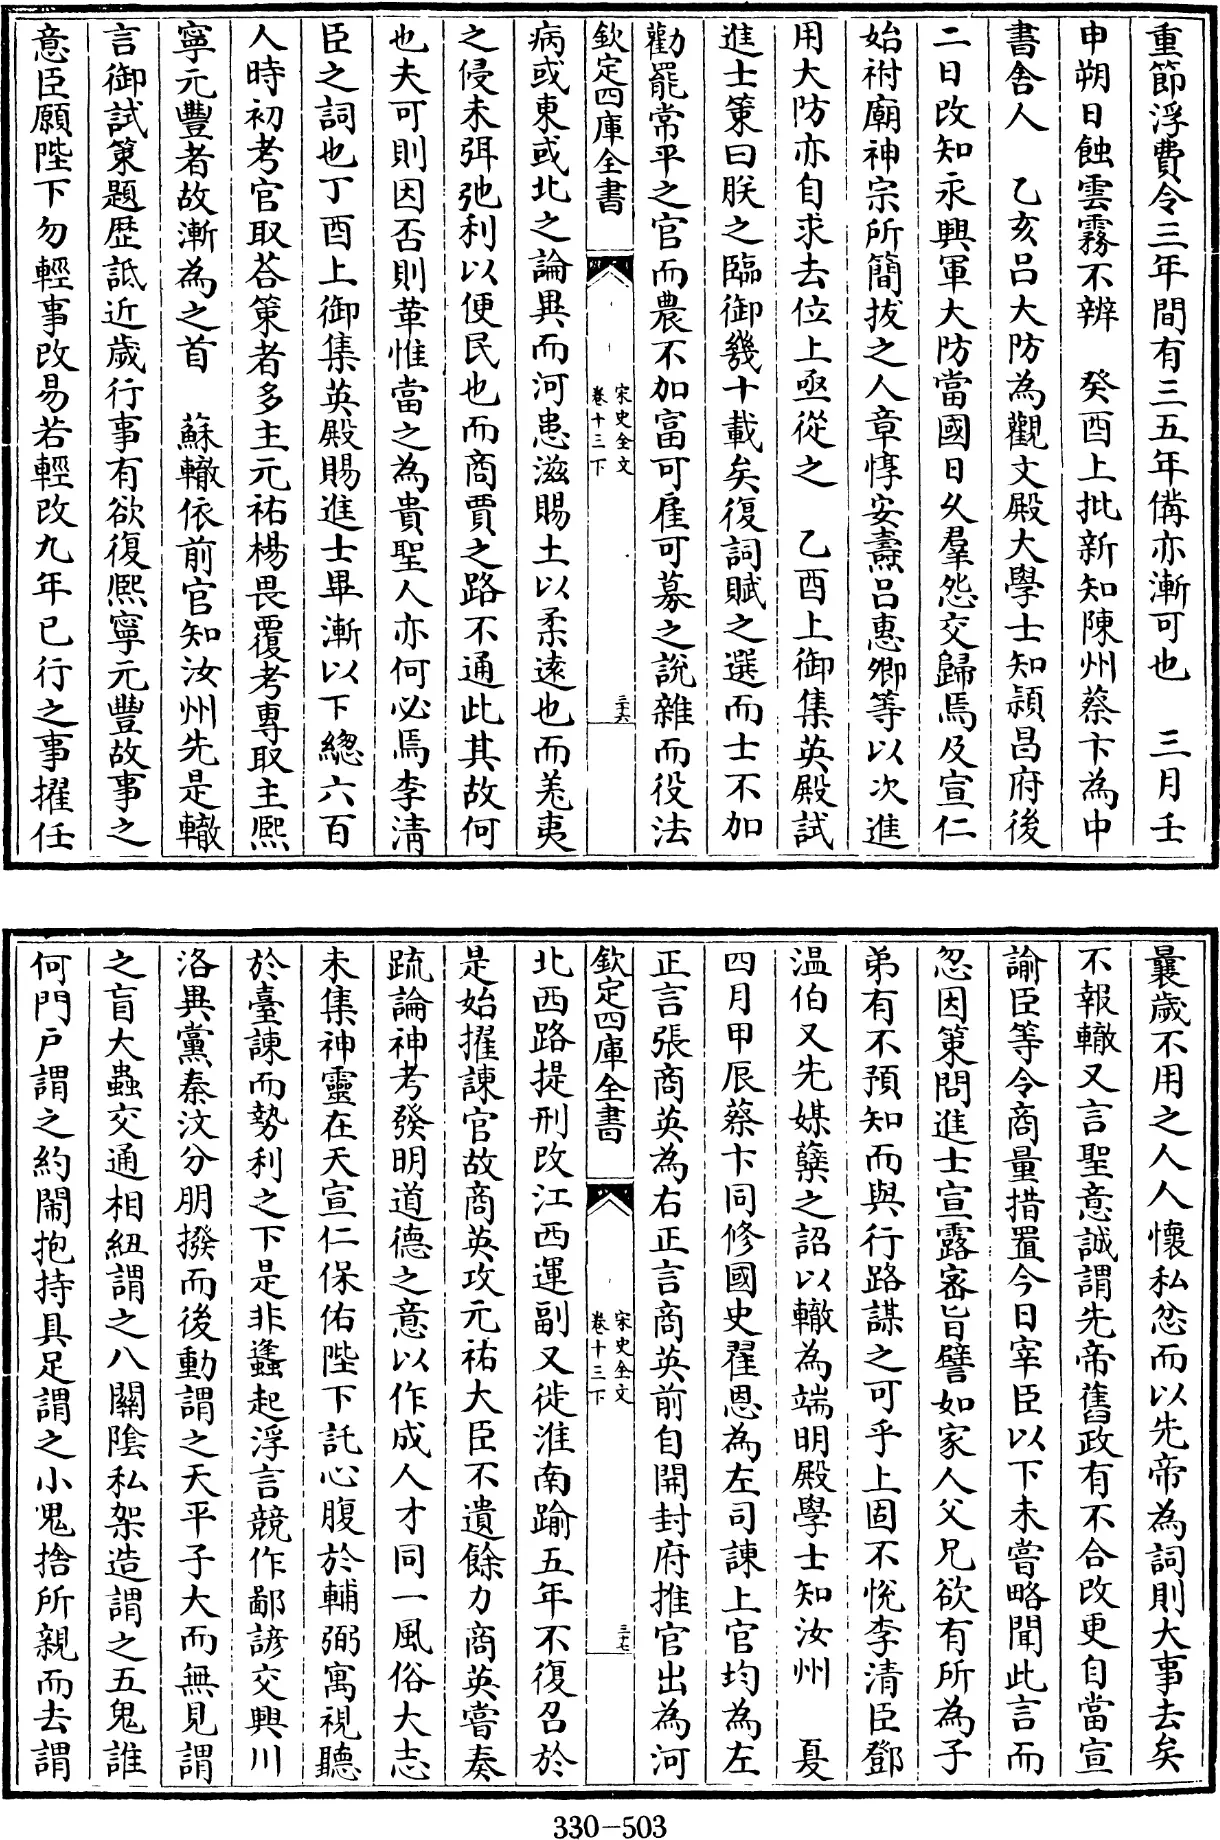 重節浮費令三年間有三五年備亦漸可也　三月壬
申朔日蝕雲霧不辨　癸酉上批新知陳州蔡卞為中
書舍人　乙亥呂大防為觀文殿大學士知潁昌府後
二日改知永興軍大防當國日久羣怨交歸焉及宣仁
始祔廟神宗所簡拔之人章惇安燾呂惠卿等以次進
用大防亦自求去位上亟從之　乙酉上御集英殿試
進士策曰朕之臨御幾十載矣復詞賦之選而士不加
勸罷常平之官而農不加富可雇可募之說雜而役法
欽定四庫全書
宋史全文
卷十三下
三十六
病或東或北之論異而河患滋賜土以柔逺也而羌夷
之侵未弭弛利以便民也而商賈之路不通此其故何
也夫可則因否則革惟當之為貴聖人亦何必焉李清
臣之詞也丁酉上御集英殿賜進士畢漸以下總六百
人時初考官取荅策者多主元祐楊畏覆考專取主熙
寧元豐者故漸為之首　蘇轍依前官知汝州先是轍
言御試策題歴詆近歲行事有欲復熙寧元豐故事之
意臣願陛下勿輕事改易若輕改九年已行之事擢任
曩歲不用之人人懷私忿而以先帝為詞則大事去矣
不報轍又言聖意誠謂先帝舊政有不合改更自當宣
諭臣等令商量措置今日宰臣以下未嘗略聞此言而
忽因策問進士宣露宻旨譬如家人父兄欲有所為子
弟有不預知而與行路謀之可乎上固不悅李清臣鄧
温伯又先媒糵之詔以轍為端明殿學士知汝州　夏
四月甲辰蔡卞同修國史翟思為左司諫上官均為左
正言張商英為右正言商英前自開封府推官出為河
欽定四庫全書
宋史全文
卷十三下
三十七
北西路提刑改江西運副又徙淮南踰五年不復召於
是始擢諫官故商英攻元祐大臣不遺餘力商英嘗奏
疏論神考發明道德之意以作成人才同一風俗大志
未集神靈在天宣仁保佑陛下託心腹於輔弼寓視聽
於臺諫而勢利之下是非蠭起浮言競作鄙諺交興川
洛異黨秦汶分朋撥而後動謂之天平子大而無見謂
之盲大蟲交通相紐謂之八關陰私架造謂之五鬼誰
何門戸謂之約閙抱持具足謂之小鬼捨所親而去謂
330-503